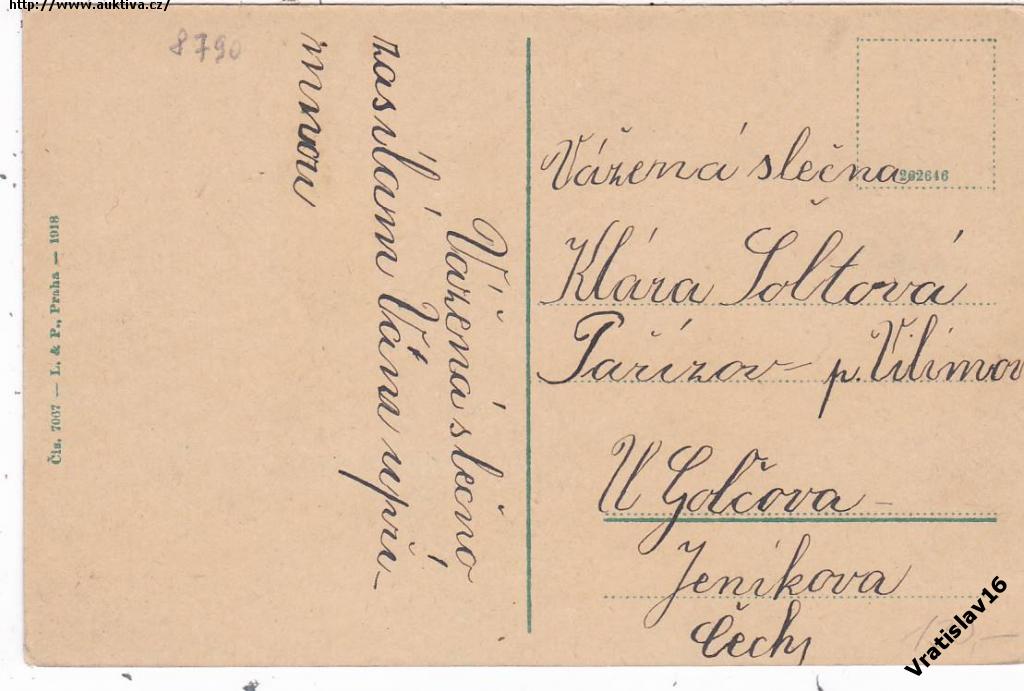 http://www.auktiva.cz/
8790
Vážená slečno
zasílám Vám upří-
mnou
Čís. 7067 — L. & P., Praha — 1918
262646
Vážená slečna
Klára Šoltová
Pařízov p. Vilímov
U Golčova -
Jeníkova
Čechy
Vratislav16